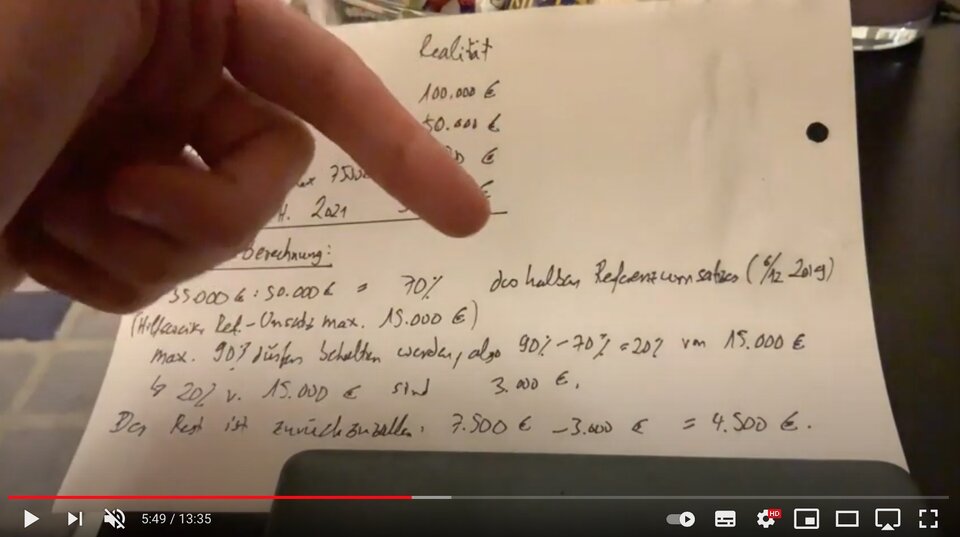 Realität
100.000 €
50.000 €
€
max 7500
€
H. 2021
Berechnung:
35000 € : 50.000 € = 70% des halben Referenzumsatzes (6/12 2019)
(Hilfsweise Ref.-Umsatz max. 15.000 €)
max. 90% dürfen behalten werden, also 90% - 70% = 20% von 15.000 €
↳ 20% v. 15.000 € sind 3.000 €.
Der Rest ist zurückzuzahlen: 7.500 € - 3.000 € = 4.500 €.
5:49 / 13:35
HD